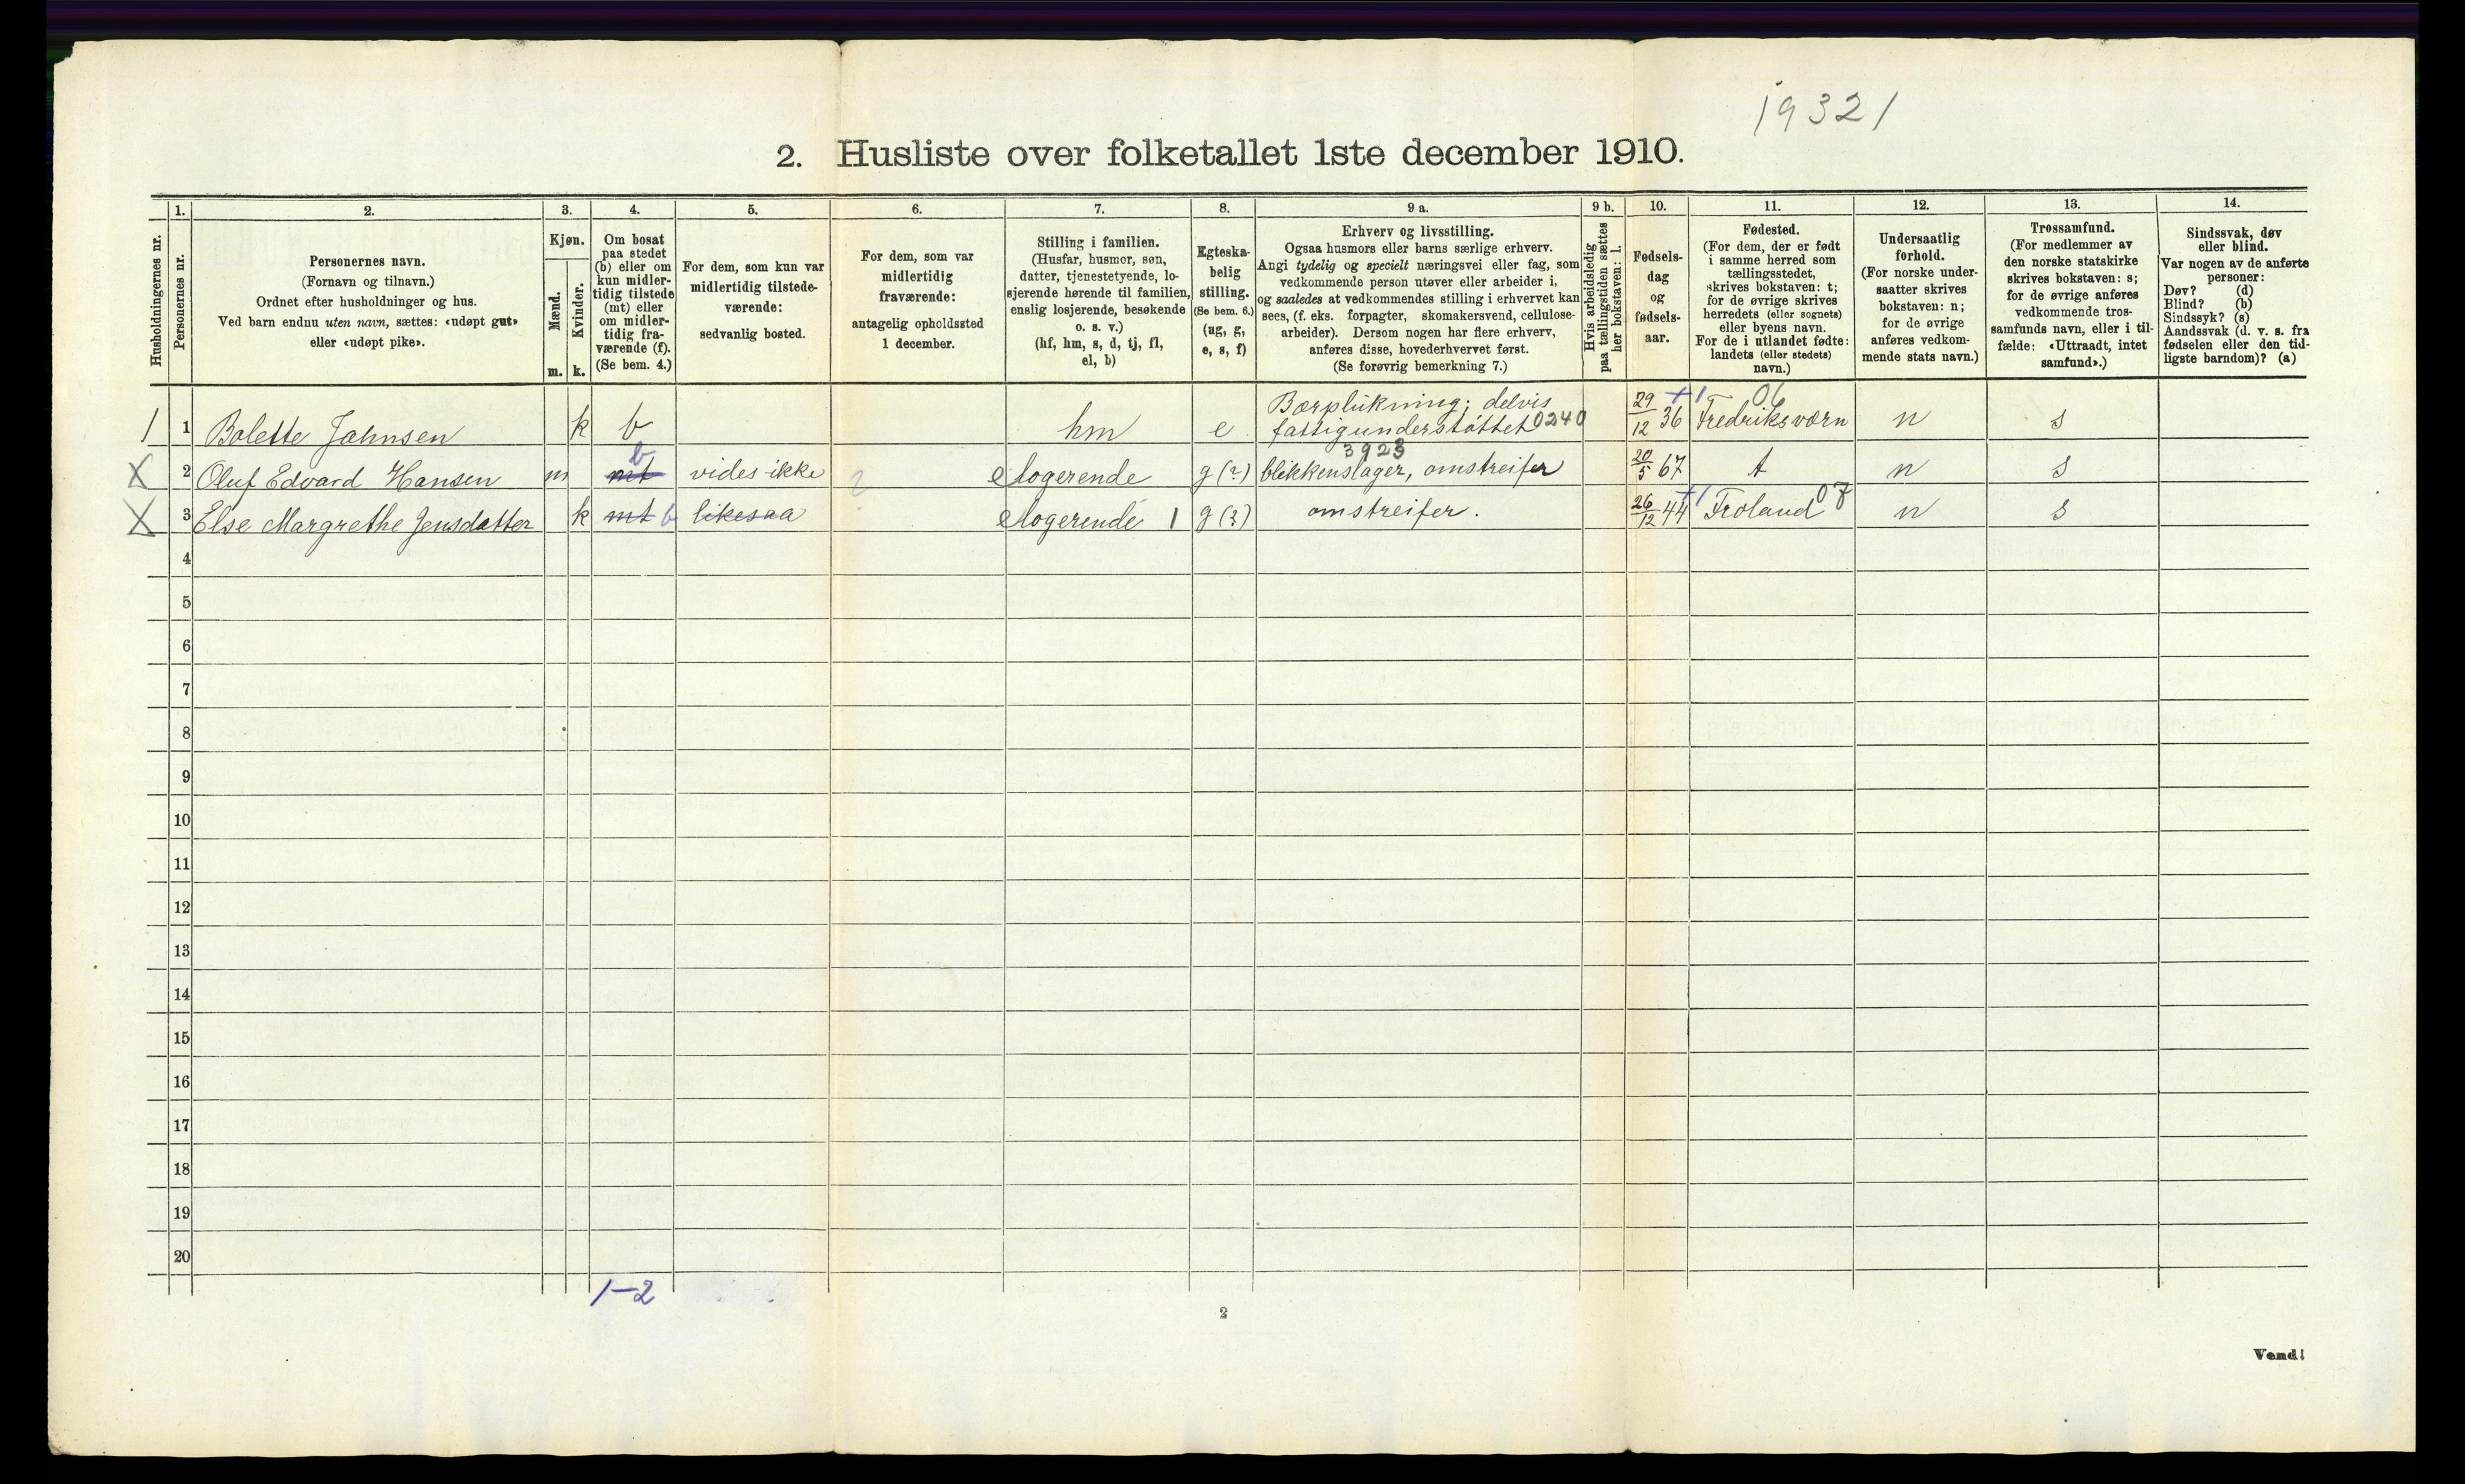 19321
2. Husliste over folketallet 1ste december 1910.
Husholdningernes nr.
1.
Personernes nr.
2.
Personernes navn.
(Fornavn og tilnavn.)
Ordnet efter husholdninger og hus.
Ved barn endnu uten navn, sættes: «udøpt gut»
eller «udøpt pike».
3.
Kjøn.
Mænd.
Kvinder.
m. k.
4.
Om bosat
paa stedet
(b) eller om
kun midler-
tidig tilstede
(mt) eller
om midler-
tidig fra-
værende (f).
(Se bem. 4.)
5.
For dem, som kun var
midlertidig tilstede-
værende:
sedvanlig bosted.
6.
For dem, som var
midlertidig
fraværende:
antagelig opholdssted
1 december.
7.
Stilling i familien.
(Husfar, husmor, søn,
datter, tjenestetyende, lo-
sjerende hørende til familien,
enslig losjerende, besøkende
o. s. v.)
(hf, hm, s, d, tj, fl,
el, b)
8.
Egteska-
belig
stilling.
(Se bem. 6.)
(ug, g,
e, s, f)
9 a.
Erhverv og livsstilling.
Ogsaa husmors eller barns særlige erhverv.
Angi tydelig og specielt næringsvei eller fag, som
vedkommende person utøver eller arbeider i,
og saaledes at vedkommendes stilling i erhvervet kan
sees, (f. eks. forpagter, skomakersvend, cellulose-
arbeider). Dersom nogen har flere erhverv,
anføres disse, hovederhvervet først.
(Se forøvrig bemerkning 7.)
9 b.
Hvis arbeidsledig
paa tællingstiden sættes
her bokstaven: l.
10.
Fødsels-
dag
og
fødsels-
aar.
11.
Fødested.
(For dem, der er født
i samme herred som
tællingsstedet,
skrives bokstaven: t;
for de øvrige skrives
herredets (eller sognets)
eller byens navn.
For de i utlandet fødte:
landets (eller stedets)
navn.)
12.
Undersaatlig
forhold.
(For norske under-
saatter skrives
bokstaven: n;
for de øvrige
anføres vedkom-
mende stats navn.)
13.
Trossamfund.
(For medlemmer av
den norske statskirke
skrives bokstaven: s;
for de øvrige anføres
vedkommende tros-
samfunds navn, eller i til-
fælde: «Uttraadt, intet
samfund».)
14.
Sindssvak, døv
eller blind.
Var nogen av de anførte
personer:
Døv? (d)
Blind? (b)
Sindssyk? (s)
Aandssvak (d. v. s. fra
fødselen eller den tid-
ligste barndom)? (a)
Bærplukning; delvis 06
1 1 Bolette Jahnsen k b hm e fattigunderstøttet 0240 29/12 36 +1 Fredriksværn n s
b 3923
X 2 Oluf Edvard Hansen m mt vides ikke ? elogerende g (?) blikkenslager, omstreifer 20/5 67 t n s
X 3 Else Margrethe Jensdatter k mt b likesaa elogerende 1 g (?) omstreifer. 26/12 44 +1 Froland 07 n s
4
5
6
7
8
9
10
11
12
13
14
15
16
17
18
19
20
1-2
2
Vend!